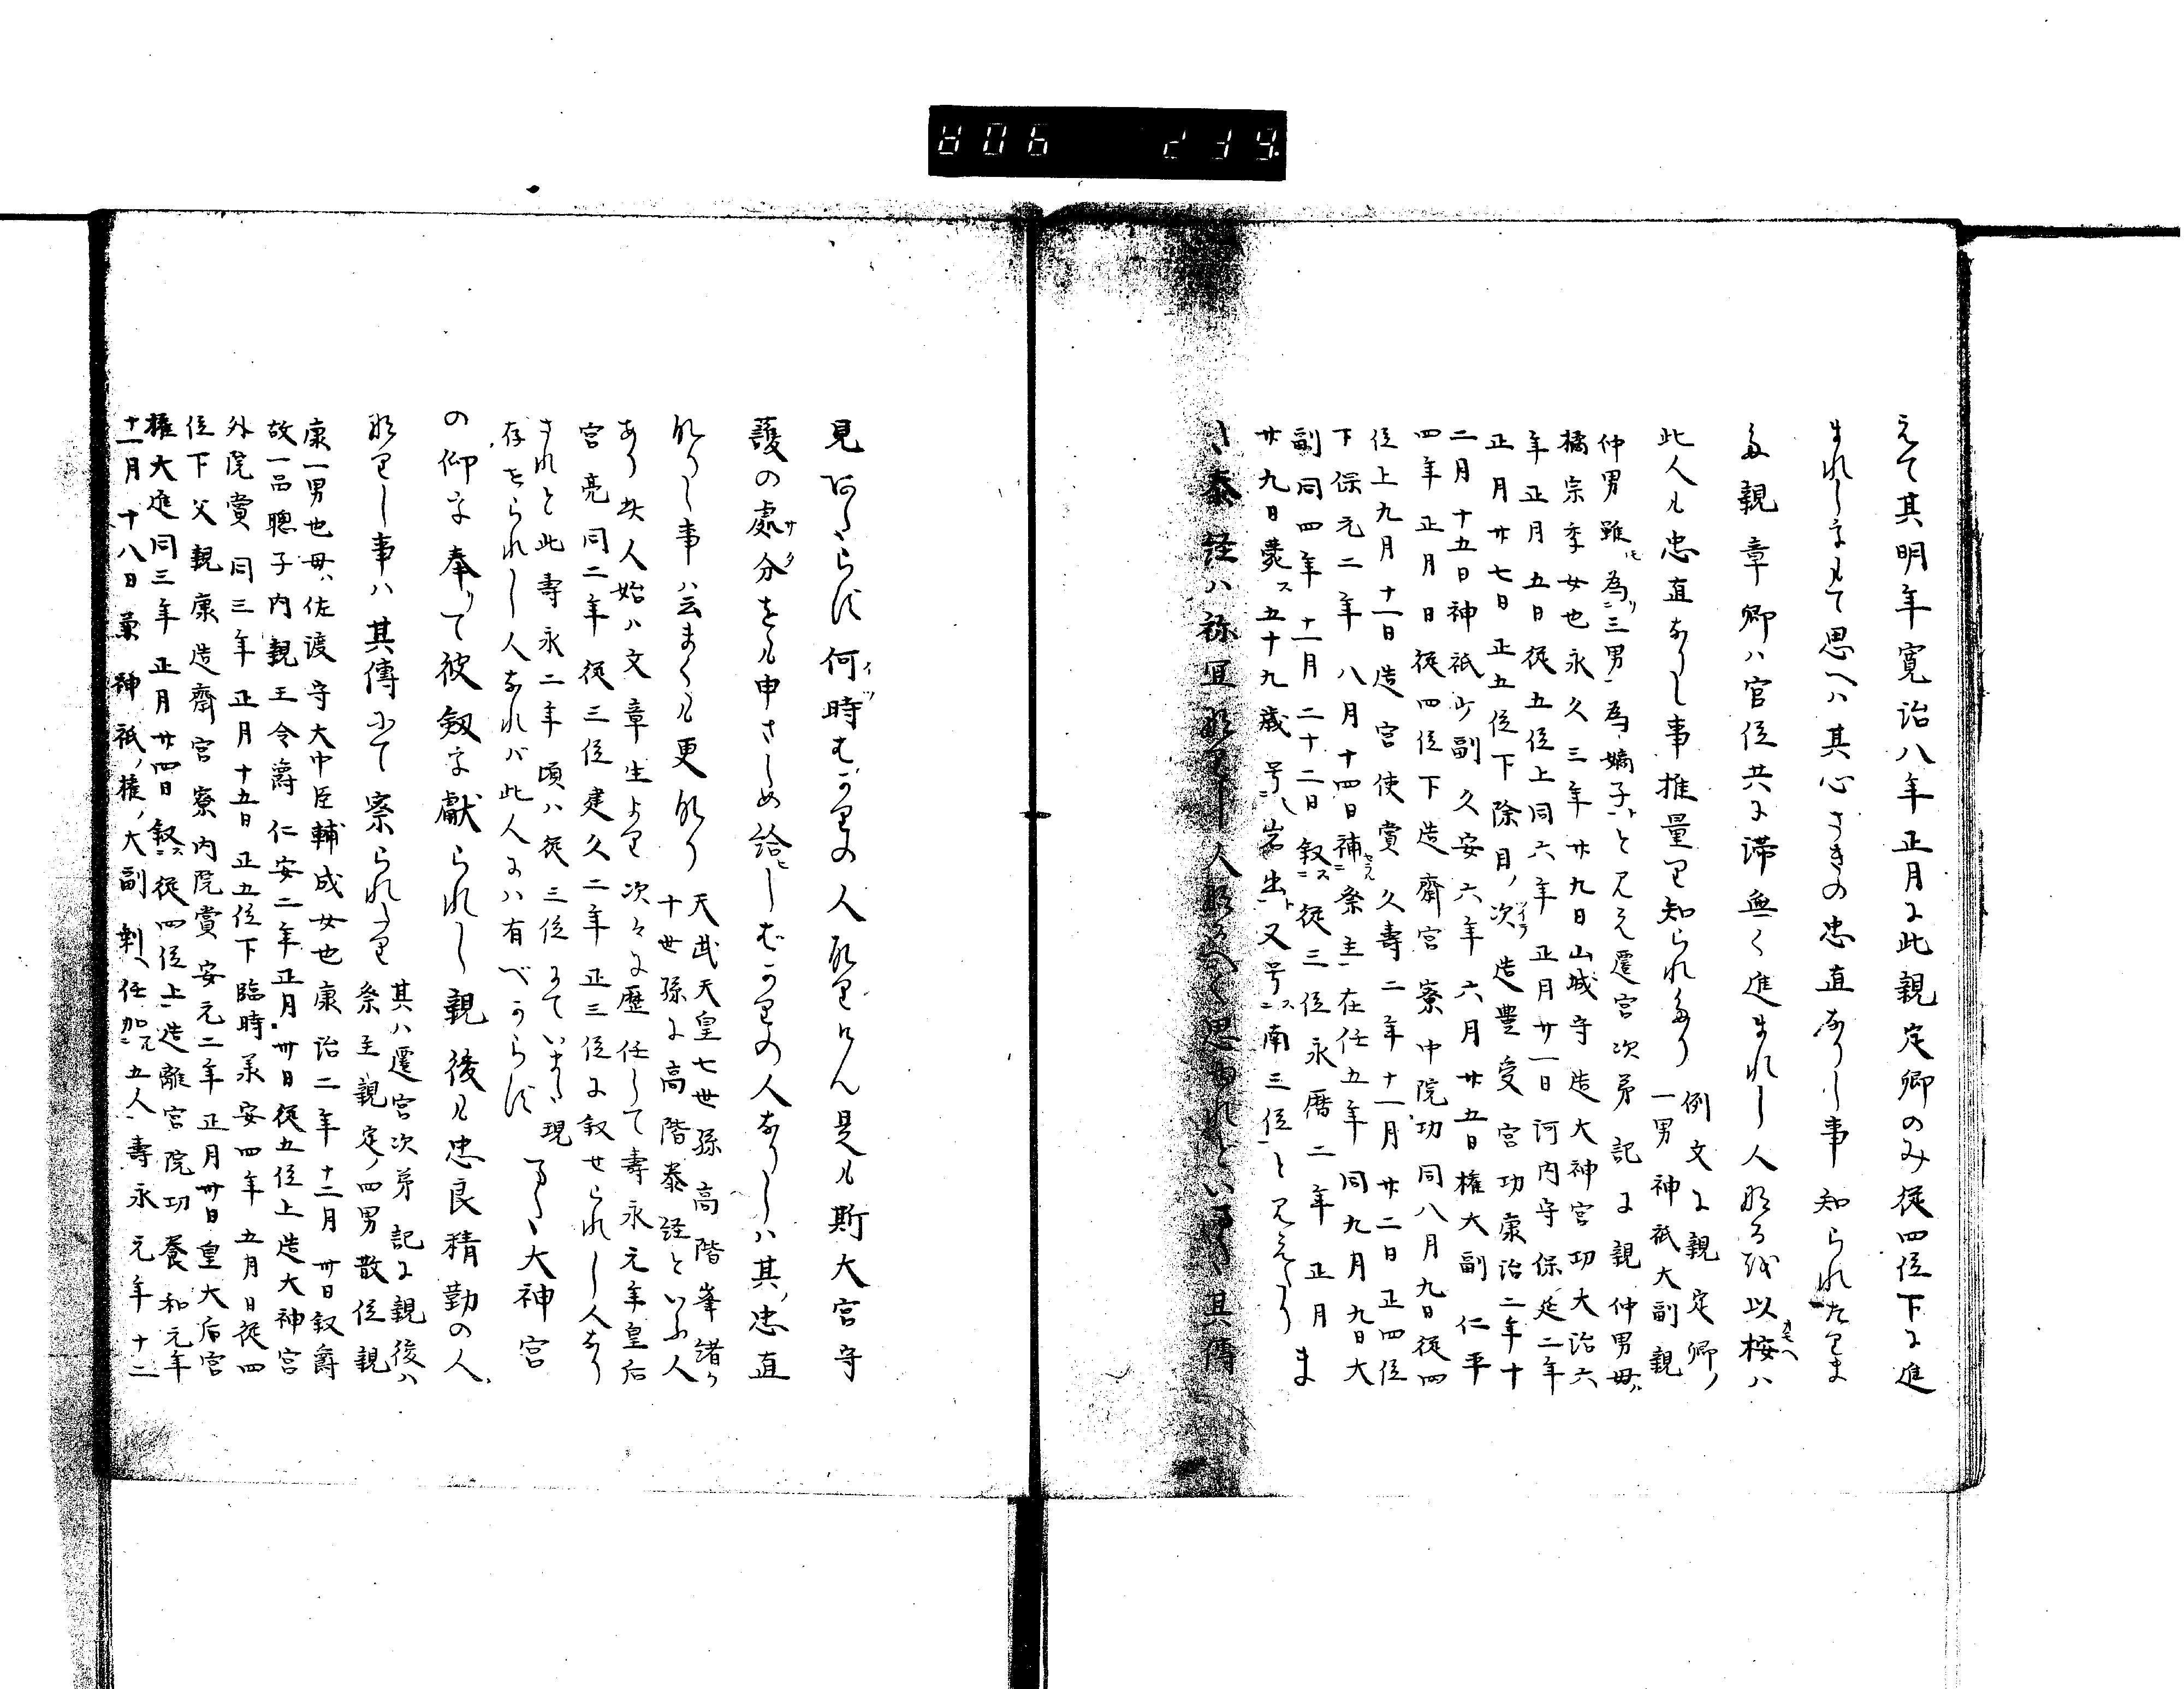 えて其明年寛治八年正月に此親定卿のみ従四位下に進
まれしにて思へハ其心さきの忠直なりし事知られたりま
た親章卿ハ官位共に滞無く進まれし人なるを以桉ハ
此人も忠直なりし事推量り知られたり
例文に親定卿ノ
一男神祇大副親
仲男雖為三男為嫡子と見え遷宮次第記に親仲男母ハ
橘宗季女也永久三年廿九日山城守造大神宮功大治六
年正月五日従五位上同六年正月廿一日河内守保延二年
正月廿七日正五位下除目ノ次造豊受宮功康治二年十
二月十五日神祇少副久安六年六月廿五日権大副仁平
四年正月日従四位下造齋宮寮中院功同八月九日従四
位上九月十一日造宮使賞久壽二年十一月廿二日正四位
下保元二年八月十四日補祭主在任五年同九月九日大
副同四年十一月二十二日叙従三位永暦二年正月
廿九日薨ス五十九歳号岩出又号南三位と見えたり
ま
た泰経ハ祢宜なりし人なるべく思はれといまた其傳
見あたらす何時むかりの人なりけん是も斯大宮守
護の處分をも申さしめ給しむかりの人なりしハ其忠直
なりし事ハ云まくも更なり
天武天皇七世孫高階峯諸ノ
十世孫に高階泰経といふ人
あり此人始ハ文章生より次々に歴任して壽永元年皇后
宮亮同二年従三位建久二年正三位に叙せられし人なり
されと此壽永二年頃ハ従三位にていまた現
存せられし人なれバ此人にハ有べからす
大神宮
の仰を奉りて彼剱を献られし親後も忠良精勤の人
なりし事ハ其傳にて察られたり
其ハ遷宮次第記に親後ハ
祭主親定ノ四男散位親
康一男也母ハ佐渡守大中臣輔成女也康治二年十二月卅日叙爵
故一品聰子内親王令爵仁安二年正月卅日従五位上造大神宮
外院賞同三年正月十五日正五位下臨時承安四年五月日従四
位下父親康造齋宮寮内院賞安元二年正月卅日皇大后宮
権大進同三年正月廿四日叙従四位上造離宮院功養和元年
十一月十八日兼神祇ノ権ノ大副剰任加五人壽永元年十二